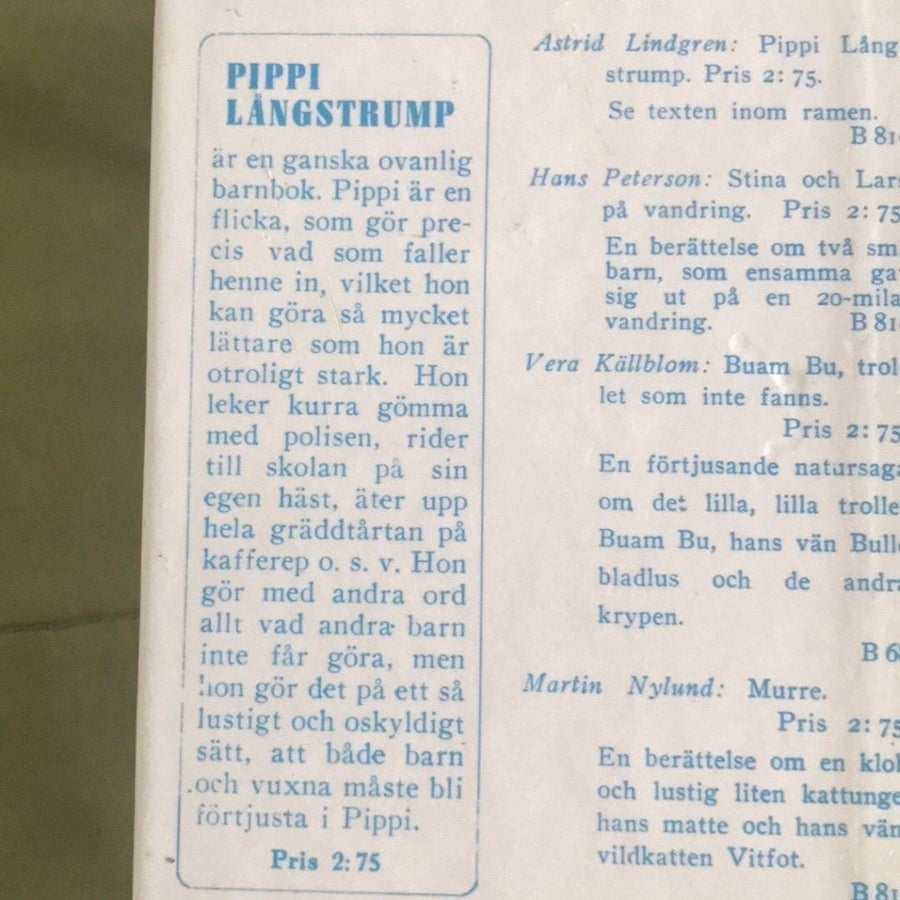 PIPPI
LÅNGSTRUMP
är en ganska ovanlig
barnbok. Pippi är en
flicka, som gör pre-
cis vad som faller
henne in, vilket hon
kan göra så mycket
lättare som hon är
otroligt stark. Hon
leker kurra gömma
med polisen, rider
till skolan på sin
egen häst, äter upp
hela gräddtårtan på
kafferep o. s. v. Hon
gör med andra ord
allt vad andra barn
inte får göra, men
hon gör det på ett så
lustigt och oskyldigt
sätt, att både barn
och vuxna måste bli
förtjusta i Pippi.
Pris 2:75
Astrid Lindgren: Pippi Lång-
strump. Pris 2:75.
Se texten inom ramen.
B 81
Hans Peterson: Stina och Lars
på vandring. Pris 2:75
En berättelse om två
barn, som ensamma
sig ut på en 20-mila
vandring. B 81
Vera Källblom: Buam Bu, trol-
let som inte fanns.
Pris 2:75
En förtjusande natursaga
om det lilla, lilla trolle
Buam Bu, hans vän Bulle
bladlus och de andra
krypen.
B 6
Martin Nylund: Murre.
Pris 2:75
En berättelse om en klok
och lustig liten kattunge
hans matte och hans vän
vildkatten Vitfot.
B 81